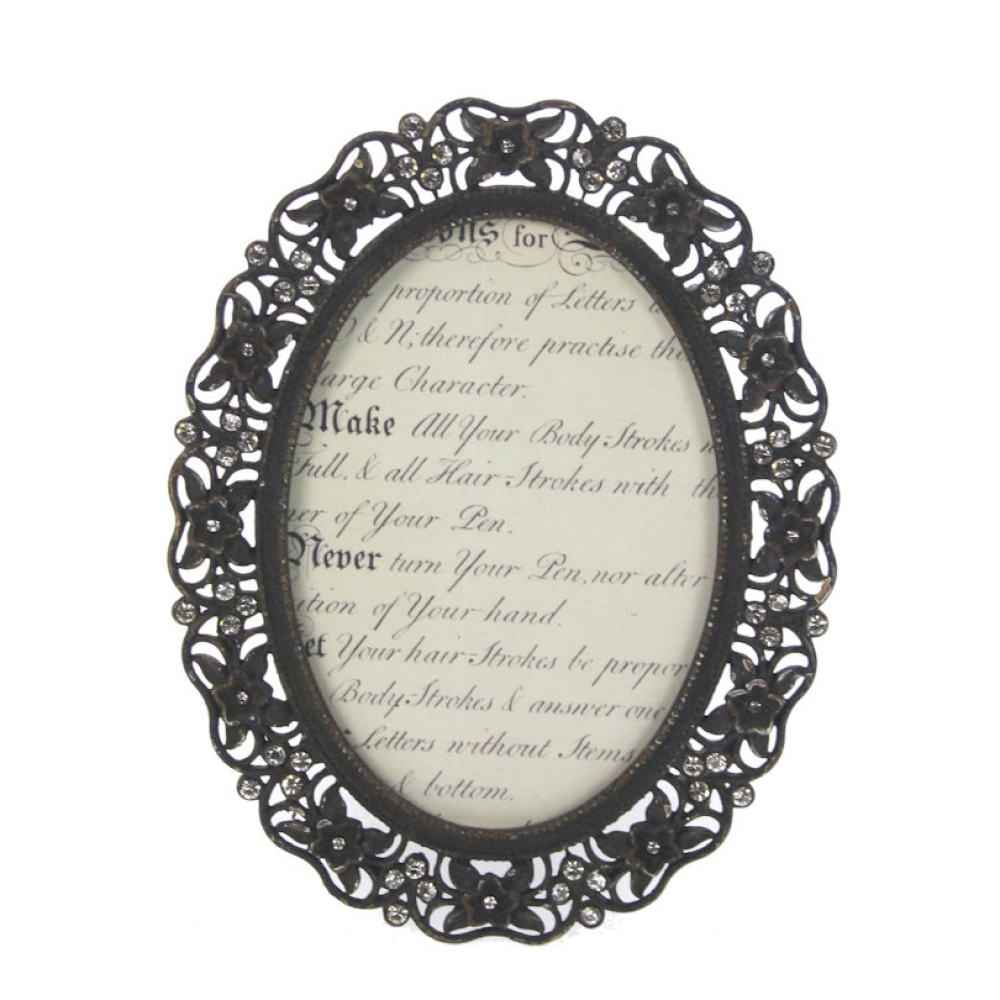 for
proportion of Letters
& N; therefore practise the
Large Character.
Make All Your Body-Strokes
Full, & all Hair-Strokes with th
ner of Your Pen.
Never turn Your Pen, nor alter
ition of Your hand.
Let Your hair-Strokes be propor
Body-Strokes & answer one
Letters without Stems
& bottom.